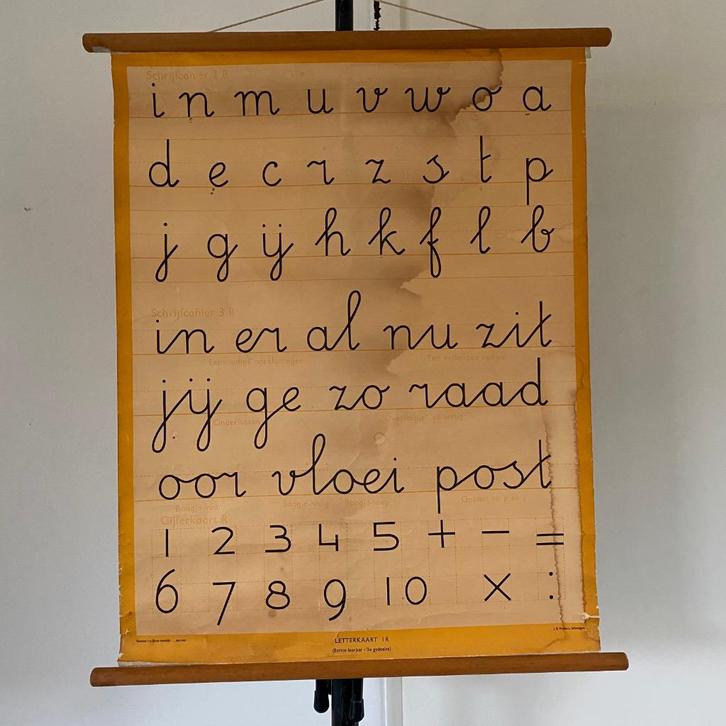 Schrijfcahier 2 R
i n m u v w o a
d e c r z s t p
j g ij h k f l b
Schrijfcahier 3 R
in er al nu zit
jij ge zo raad
oor vloei post
Cijferkaart R
1 2 3 4 5 + - =
6 7 8 9 10 × :
LETTERKAART 1 R